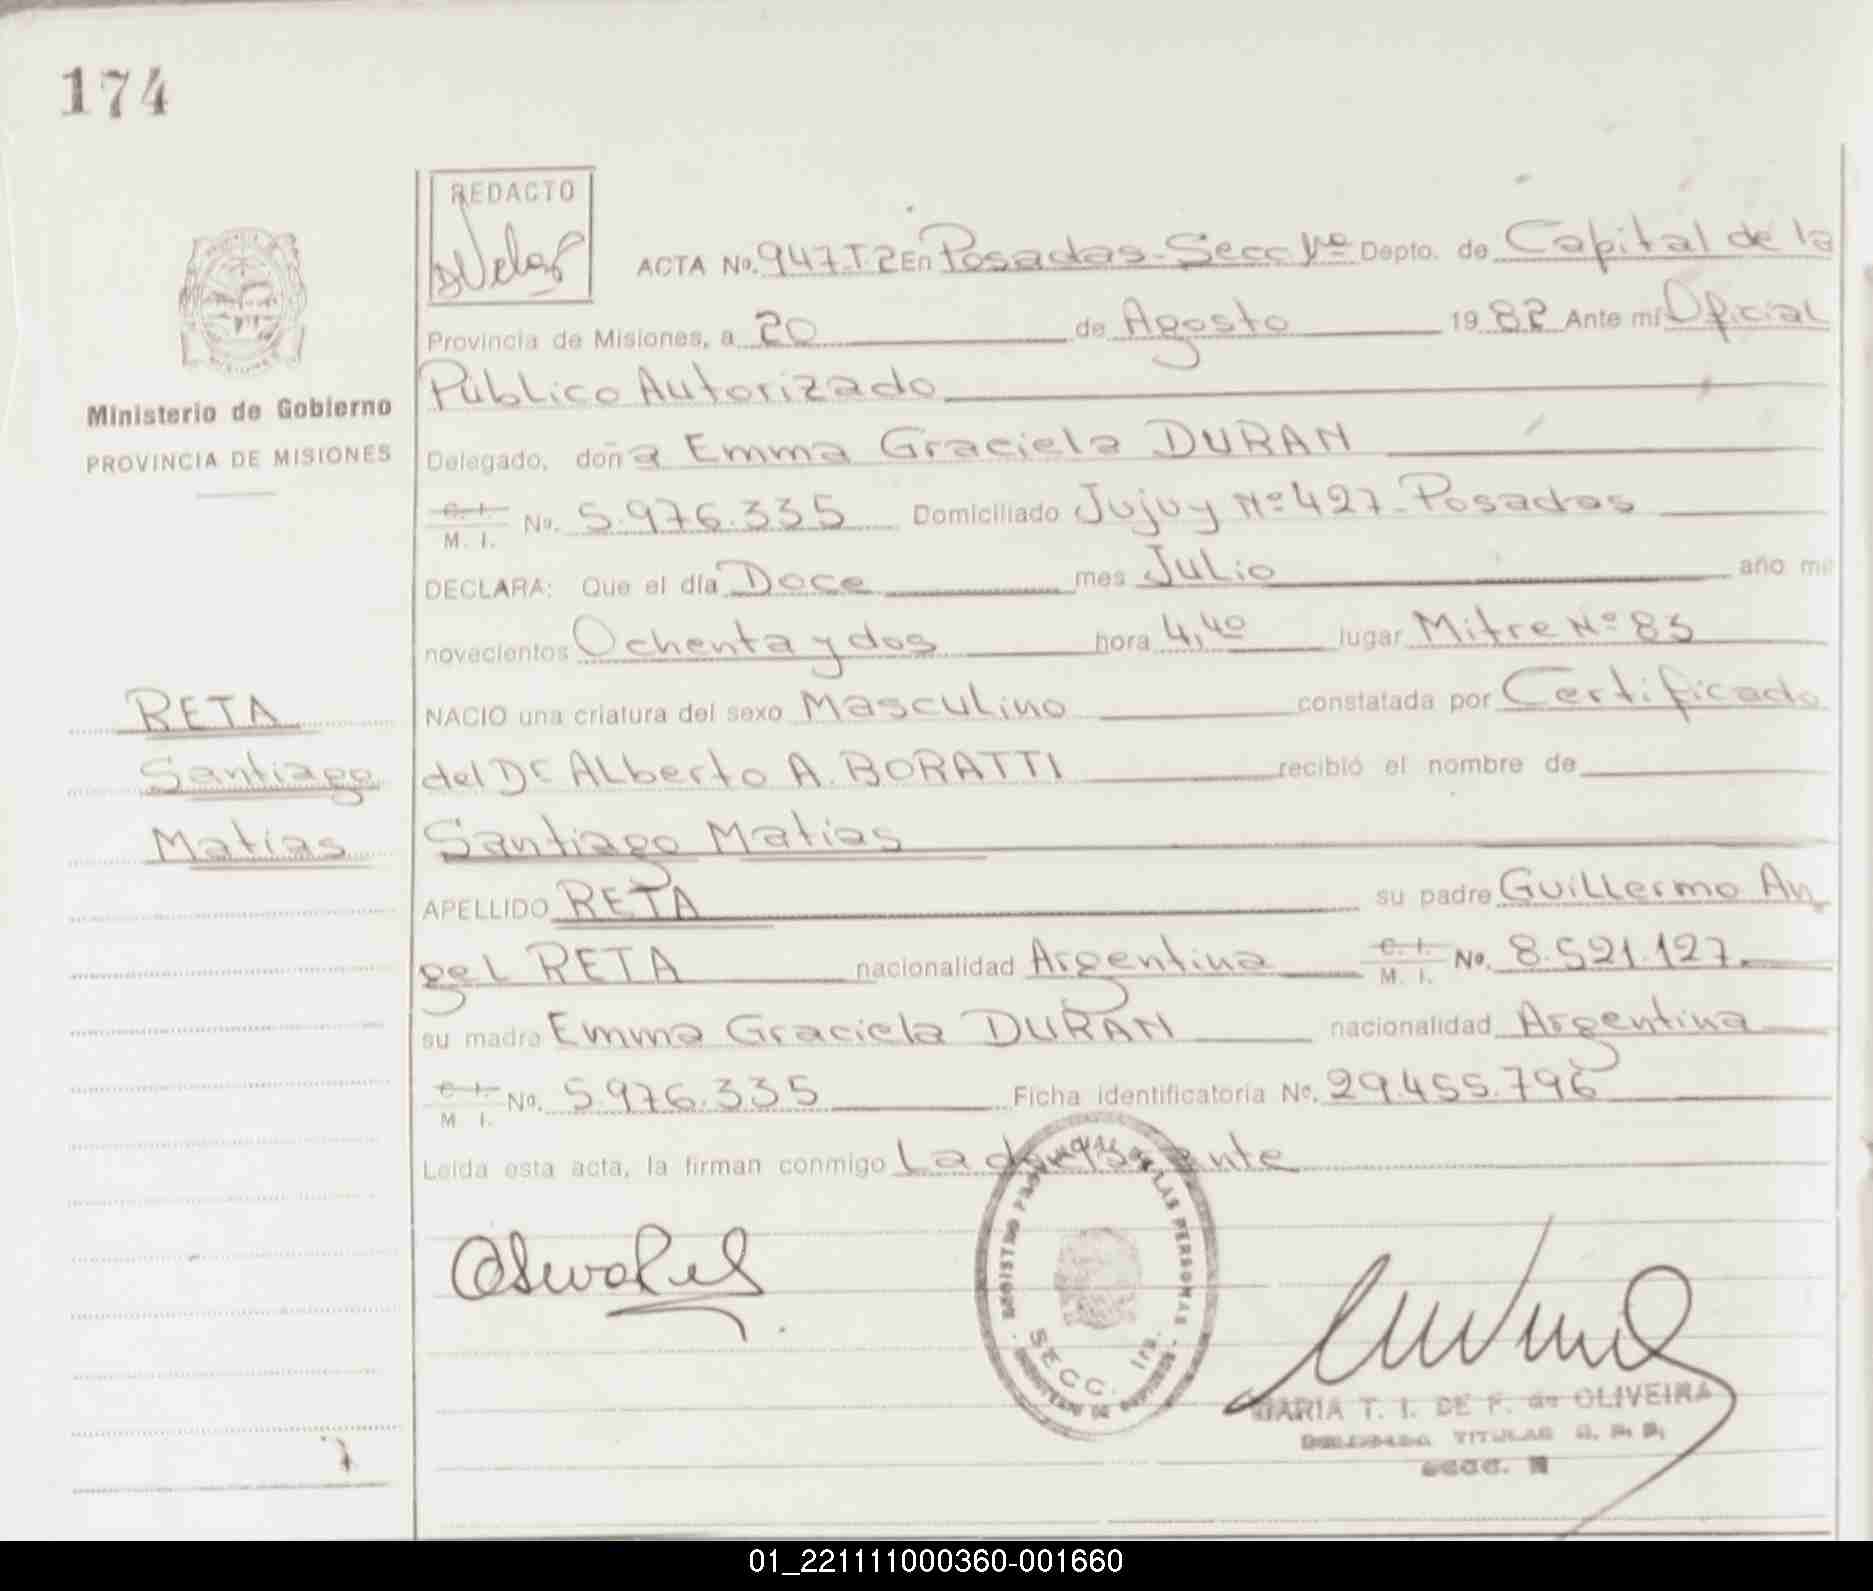 174
REDACTO
ACTA No. 947-T2 En Posadas-Secc 1ª Depto. de Capital de la
Provincia de Misiones, a 20 de Agosto 1982 Ante mí Oficial
Público Autorizado
Ministerio de Gobierno
PROVINCIA DE MISIONES
Delegado, doña Emma Graciela DURAN
C. I.
M. I. No. 5.976.335 Domiciliado Jujuy Nº 427-Posadas
DECLARA: Que el día Doce mes Julio año mi
novecientos Ochenta y dos hora 4,40 lugar Mitre Nº 83
NACIO una criatura del sexo Masculino constatada por Certificado
del Dr Alberto A. BORATTI recibió el nombre de
Santiago Matías
APELLIDO RETA su padre Guillermo An
gel RETA nacionalidad Argentina C. I. M. I. No. 8.521.127.
su madre Emma Graciela DURAN nacionalidad Argentina
C. I.
M. I. No. 5.976.335 Ficha identificatoria No. 29.455.796
Leída esta acta, la firman conmigo La
RETA
Santiago
Matías
REGISTRO PROVINCIAL DE LAS PERSONAS
SECC. 1ra.
MARIA T. I. DE F. de OLIVEIRA
TITULAR
SECC.
01_221111000360-001660